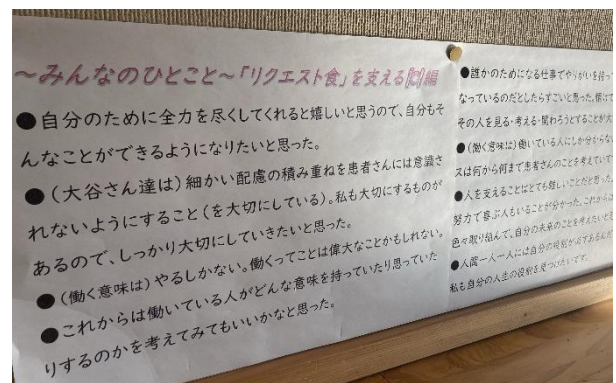 ～みんなのひとこと～「リクエスト食」を支える 編
●自分のために全力を尽くしてくれると嬉しいと思うので、自分もそ
んなことができるようになりたいと思った。
●（大谷さん達は）細かい配慮の積み重ねを患者さんには意識さ
れないようにすること（を大切にしている）。私も大切にするものが
あるので、しっかり大切にしていきたいと思った。
●（働く意味は）やるしかない。働くってことは偉大なことかもしれない。
●これからは働いている人がどんな意味を持っていたり思っていた
りするのかを考えてみてもいいかなと思った。
●誰かのためになる仕事でやりがいを持っ
なっているのだとしたらすごいと思った。
その人を見る・考える・関わろうとすることが大
●（働く意味は）働いている人にしか分からな
スは何から何まで患者さんのことを考えていて
●人を支えることはとても難しいことだと思った。
努力で喜ぶ人もいることが分かった。これからは
色々取り組んで、自分の未来のことを考えたいと
●人間一人一人には自分の役割が必ずあるんだ
私も自分の人生の役割を見つけたいです。